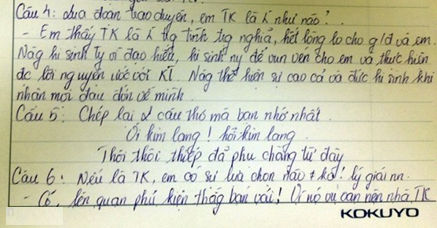 Câu 4: Qua đoạn trao duyên, em TK là ng như nào?
- Em thấy TK là ng tình ng nghĩa, hết lòng lo cho g/đ và em.
Nàg hi sinh ty vì đạo hiếu, hi sinh ny để vun vén cho em và thực hiện
đc lời nguyện ước với KT. Nàg thể hiện sự cao cả và đức hi sinh khi
nhận mọi đau đớn về mình.
Câu 5: Chép lại 2 câu thơ mà bạn nhớ nhất.
Ôi kim lang! hỡi kim lang
Thôi thôi thiếp đã phụ chàng từ đây
Câu 6: Nếu là TK, em có sự lựa chọn nào ≠ kô? lý giải nn.
- Có, lên quan phủ kiện thằg bán vải! Vì nó vu oan nên nhà TK
KOKUYO